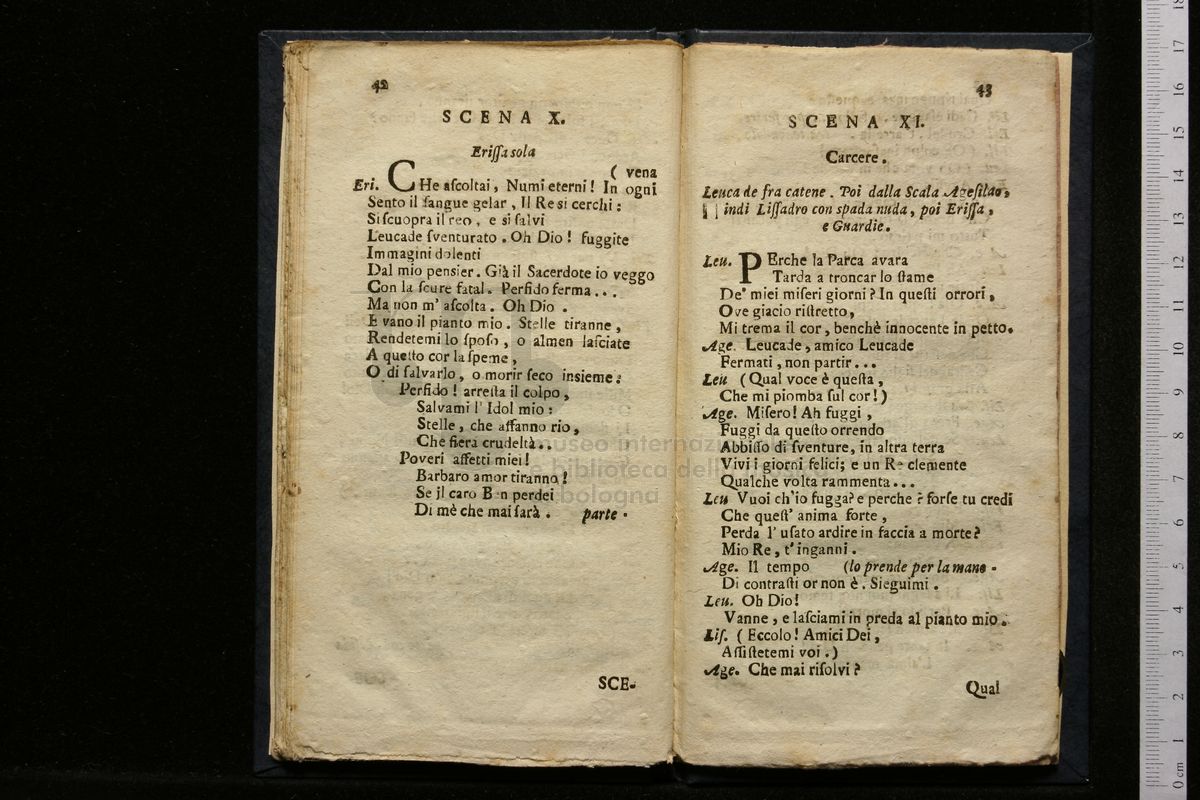 42
SCENA X.
Eriſſa sola
( vena
Eri. CHe aſcoltai, Numi eterni! In ogni
Sento il ſangue gelar, Il Re si cerchi:
Si ſcuopra il reo, e si ſalvi
Leucade ſventurato. Oh Dio! fuggite
Immagini dolenti
Dal mio pensier. Già il Sacerdote io veggo
Con la ſcure fatal. Perfido ferma...
Ma non m' aſcolta. Oh Dio.
E vano il pianto mio. Stelle tiranne,
Rendetemi lo ſpoſo, o almen laſciate
A queſto cor la ſpeme,
O di ſalvarlo, o morir ſeco insieme:
Perfido! arreſta il colpo,
Salvami l' Idol mio:
Stelle, che affanno rio,
Che fiera crudeltà..
Poveri affetti miei!
Barbaro amor tiranno!
Se il caro Ben perdei
Di mè che mai ſarà. parte.
SCE-
43
SCENA XI.
Carcere.
Leucade fra catene. Poi dalla Scala Ageſilao,
indi Liſſadro con spada nuda, poi Eriſſa,
e Guardie.
Leu. PErche la Parca avara
Tarda a troncar lo ſtame
De' miei miſeri giorni? In queſti orrori,
Ove giacio riſtretto,
Mi trema il cor, benchè innocente in petto.
Age. Leucade, amico Leucade
Fermati, non partir...
Leu (Qual voce è queſta,
Che mi piomba ſul cor!)
Age. Miſero! Ah fuggi,
Fuggi da queſto orrendo
Abbiſſo di ſventure, in altra terra
Vivi i giorni felici; e un Re clemente
Qualche volta rammenta...
Leu Vuoi ch'io fugga? e perche? forſe tu credi
Che queſt' anima forte,
Perda l' uſato ardire in faccia a morte?
Mio Re, t' inganni.
Age. Il tempo (lo prende per la mano.
Di contraſti or non è. Sieguimi.
Leu. Oh Dio!
Vanne, e laſciami in preda al pianto mio.
Liſ. (Eccolo! Amici Dei,
Aſſiſtetemi voi.)
Age. Che mai riſolvi?
Qual
museo internazionale
e biblioteca della musica
bologna
0 cm 1 2 3 4 5 6 7 8 9 10 11 12 13 14 15 16 17 18